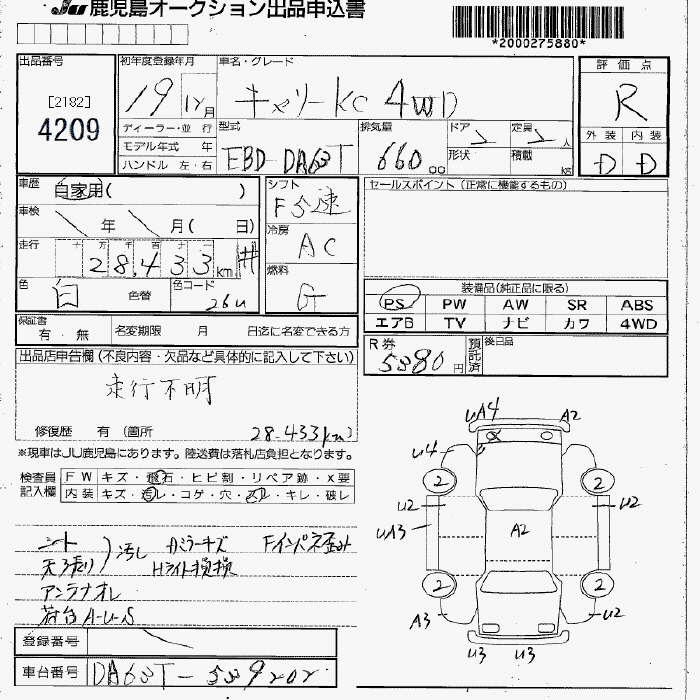 JU 鹿児島オークション出品申込書
*2000275880*
出品番号
[2182]
4209
初年度登録年月
19 12月
車名・グレード
キャリーKC 4WD
評価点
R
外装 内装
D D
ディーラー・並 行
モデル年式 年
ハンドル 左・右
型式
EBD-DA63T
排気量
660 cc
ドア 2
定員 2人
形状
積載 kg
車歴
自家用( )
車検
年 月( 日)
走行
十 万 千 百 十 一
28,433km #
色
白
色替
色コード
26U
シフト
F5速
冷房
AC
燃料
G
セールスポイント(正常に機能するもの)
装備品(純正品に限る)
PS PW AW SR ABS
エアB TV ナビ カワ 4WD
保証書
有・無
名変期限 月 日迄に名変できる方
R券
5380円
預託済
後日品
出品店申告欄(不良内容・欠品など具体的に記入して下さい)
走行不明
修復歴 有(箇所
28.433km)
※現車はJU鹿児島にあります。陸送費は落札店負担となります。
検査員
記入欄
FW キズ・飛石・ヒビ割・リペア跡・X要
内装 キズ・汚レ・コゲ・穴・スレ・キレ・破レ
シート
天張り
)汚し
アンテナオレ
荷台A-U-S
Hライト損損
Fインパネ歪み
登録番号
車台番号
DA63T-539202
UA4
A2
U4
2
2
U2
U2
UA3
A2
2
2
A3
U2
U3
U3